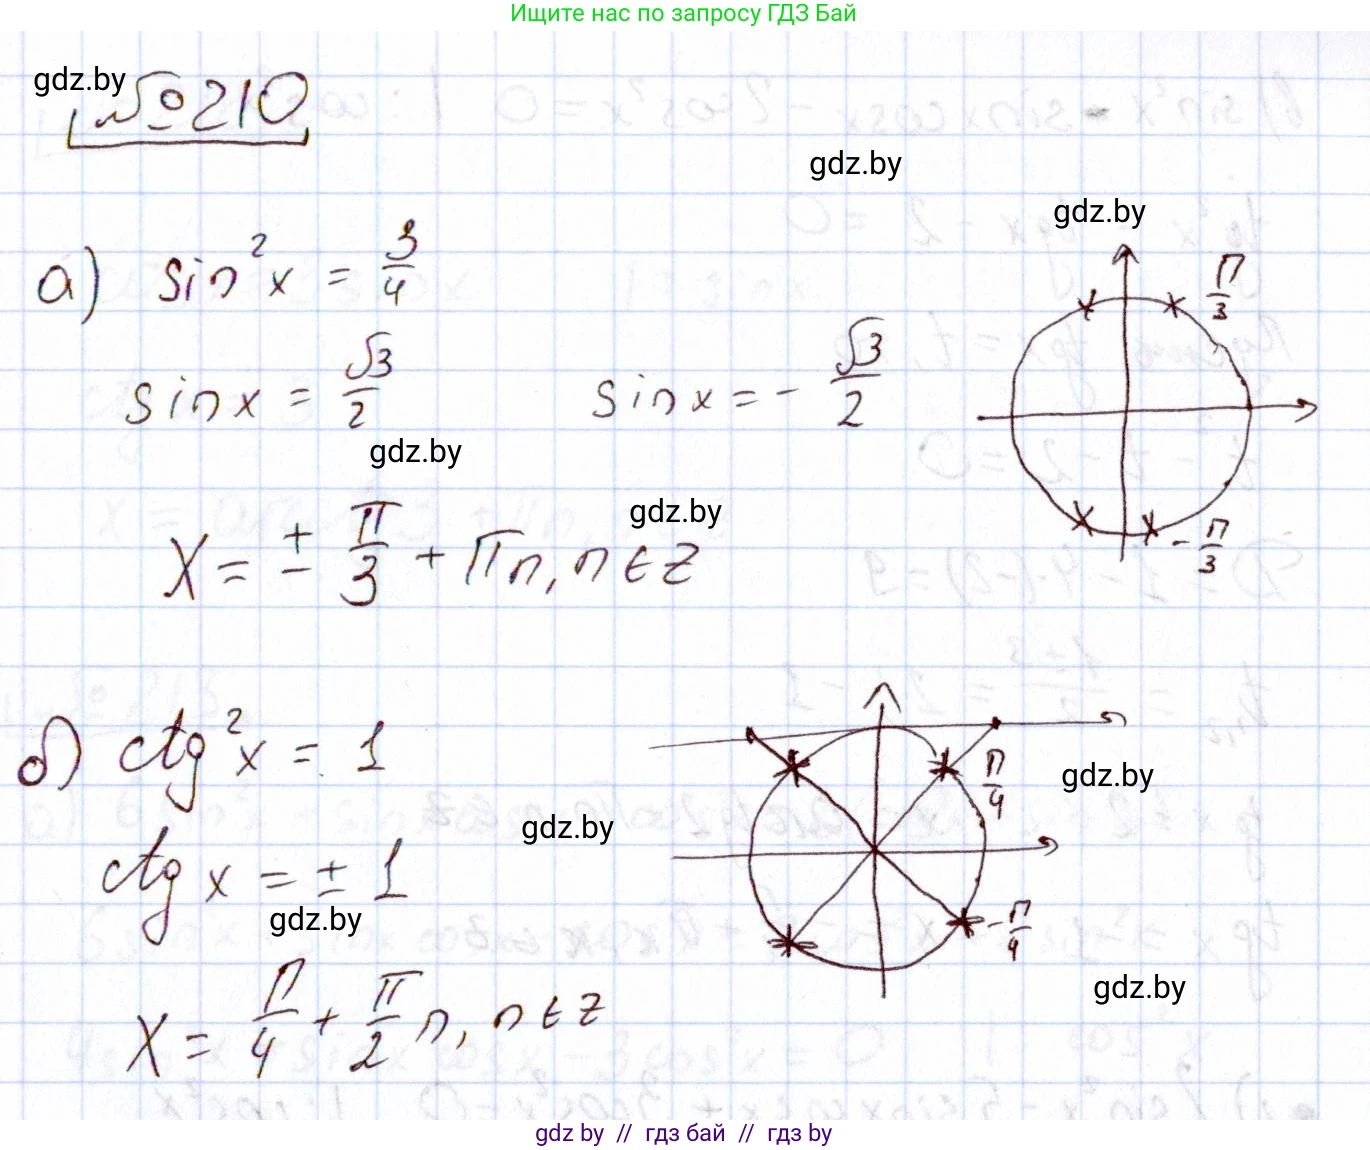 Ищите нас по запросу ГДЗ Бай
gdz.by
№210
gdz.by
gdz.by
а) sin²x = 3/4
π/3
sinx = √3/2 sinx = - √3/2
gdz.by
gdz.by
x = ± π/3 + πn, n ∈ Z
- π/3
б) ctg²x = 1
π/4
gdz.by
gdz.by
ctg x = ± 1
gdz.by
- π/4
gdz.by
x = π/4 + π/2 n, n ∈ Z
gdz.by // гдз бай // гдз by